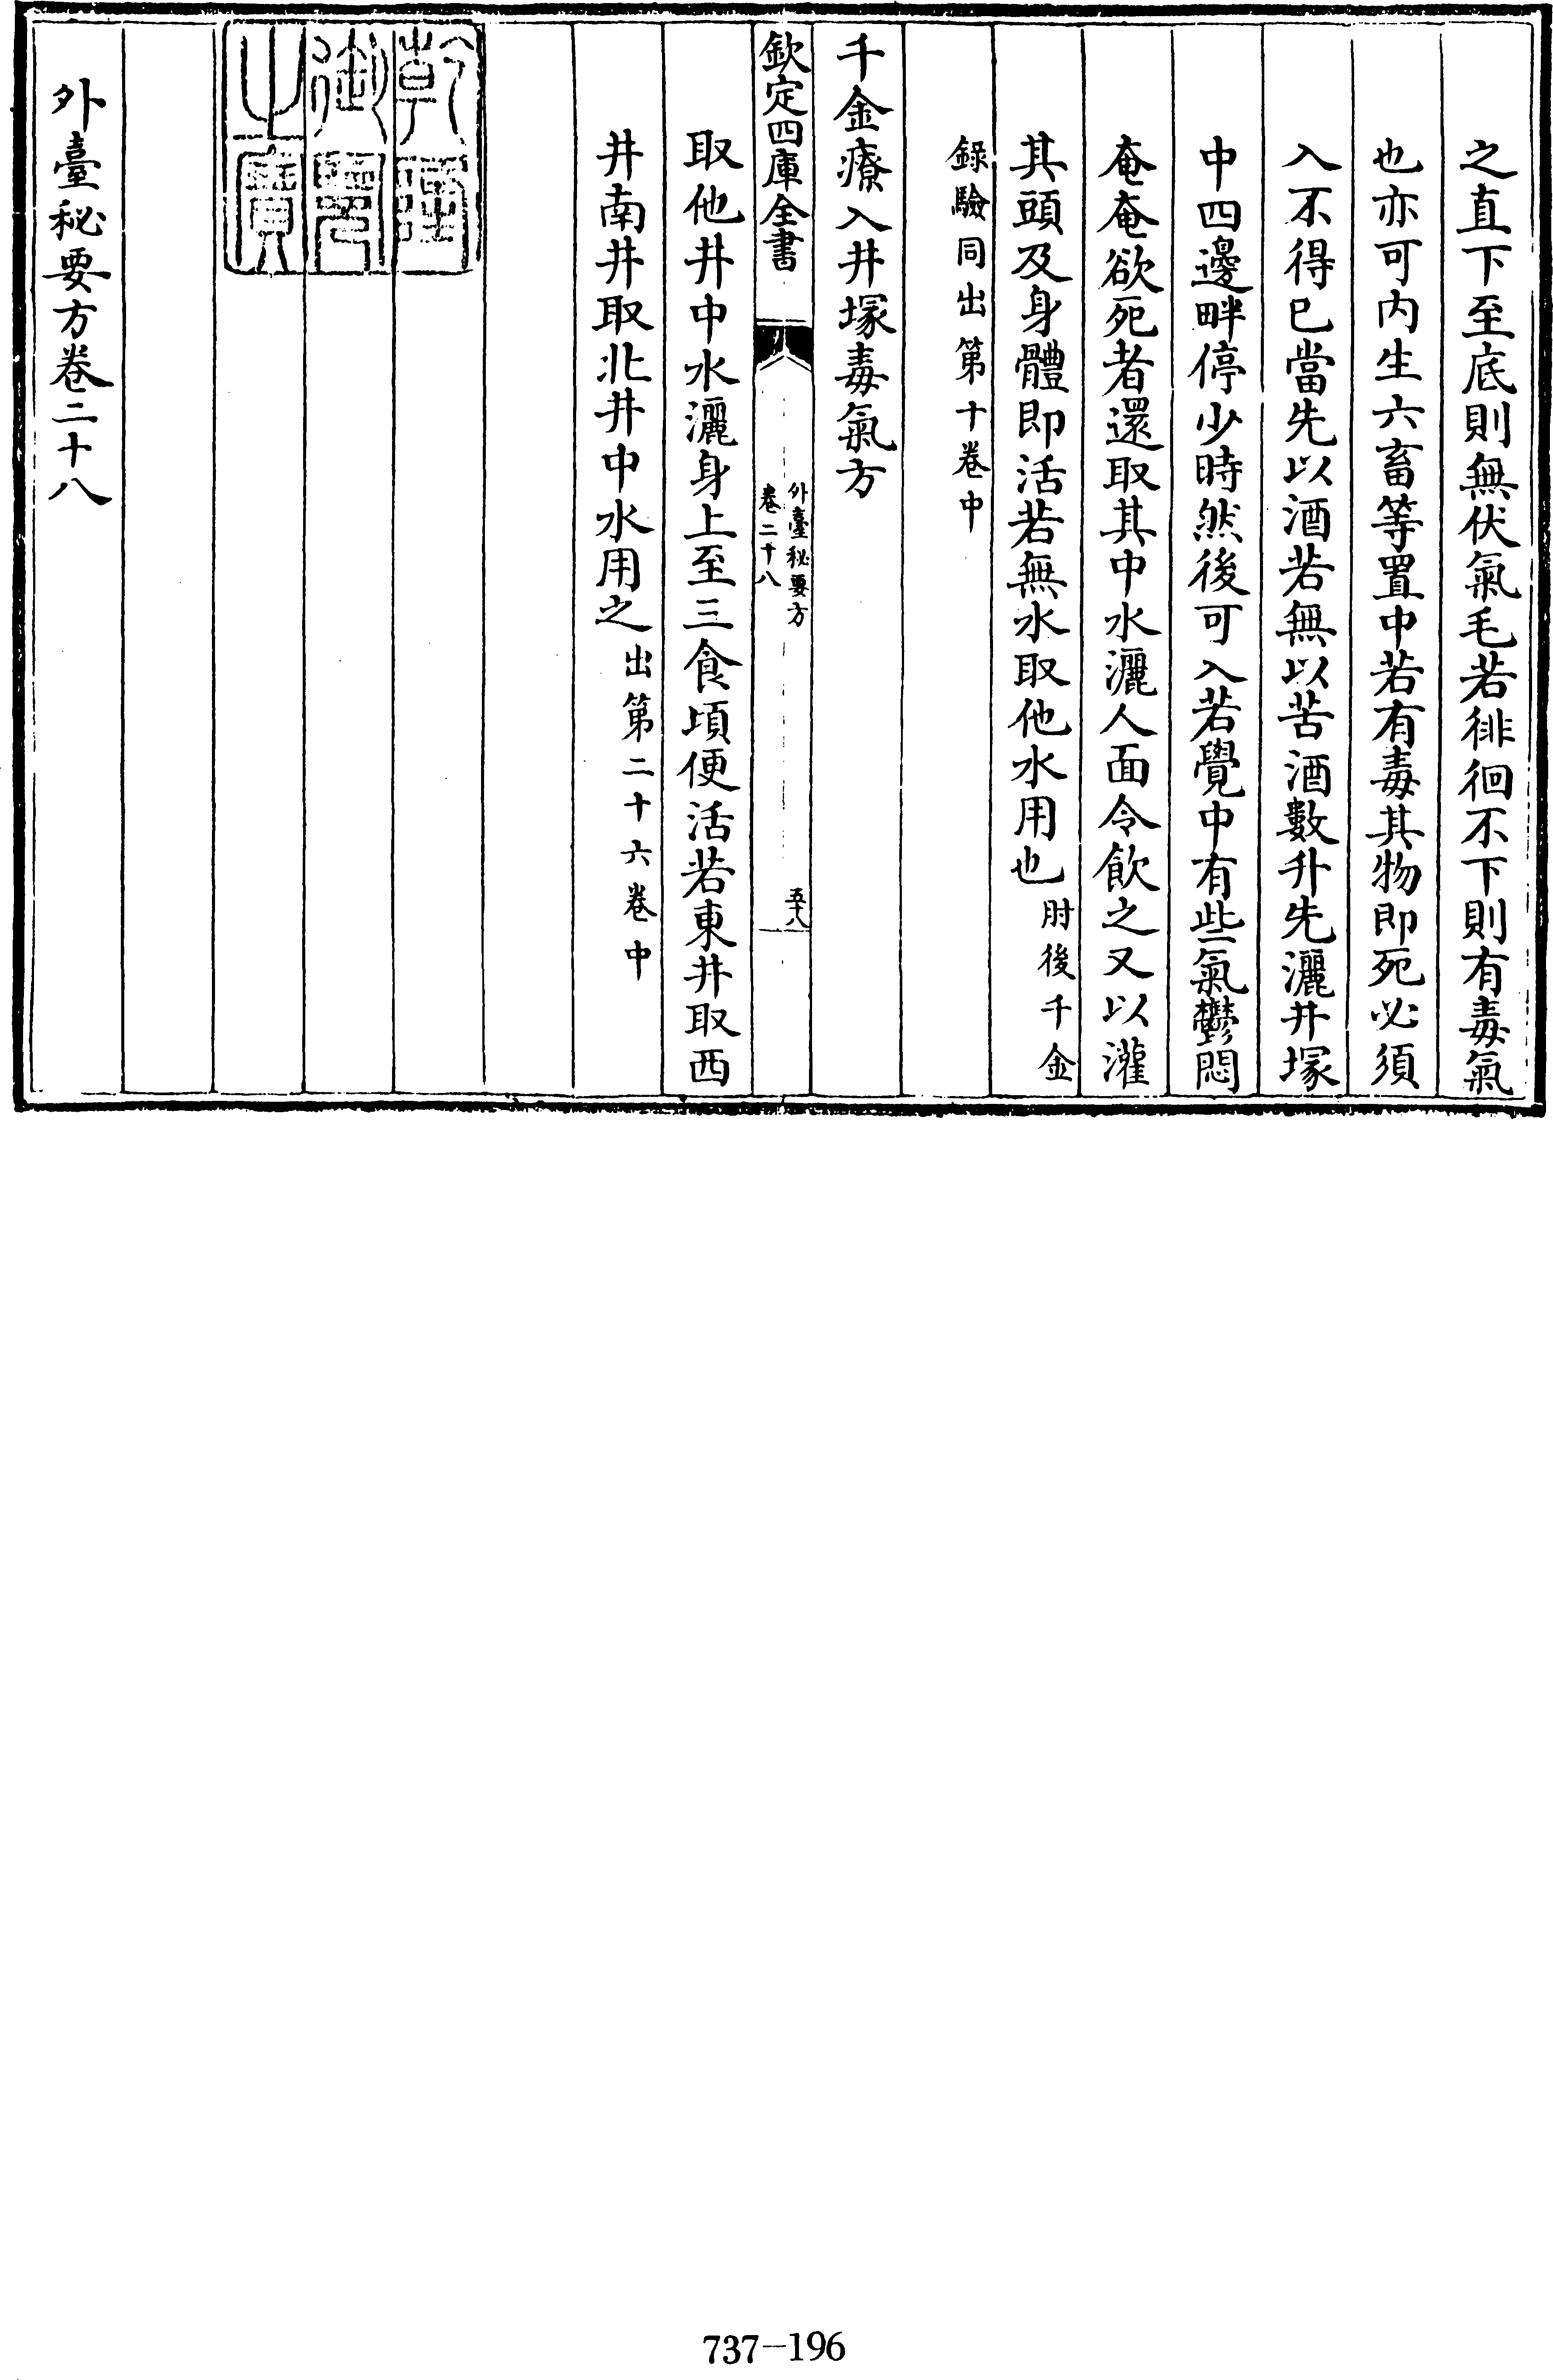 之直下至底則無伏氣毛若徘徊不下則有毒氣
也亦可内生六畜等置中若有毒其物即死必須
入不得已當先以酒若無以苦酒數升先灑井塚
中四邊畔停少時然後可入若覺中有些氣鬱悶
奄奄欲死者還取其中水灑人面令飲之又以灌
其頭及身體即活若無水取他水用也肘後千金
錄驗同出第十卷中
千金療入井塚毒氣方
欽定四庫全書
外臺秘要方
卷二十八
五十八
取他井中水灑身上至三食頃便活若東井取西
井南井取北井中水用之出第二十六卷中
乾隆
御覽
之寶
外臺秘要方卷二十八
737-196